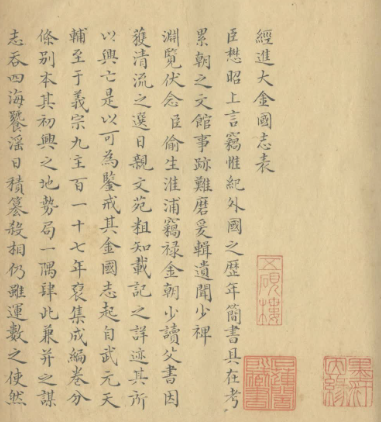 經進大金國志表
臣懋昭上言竊惟紀外國之歷年簡書具在考
累朝之文館事跡難磨爰輯遺聞少裨
淵覽伏念臣偷生淮浦竊祿金朝少讀父書因
獲清流之選日親文苑粗知載記之詳迹其所
以興亡是以可為鑒戒其金國志起自武元天
輔至于義宗九主百一十七年裒集成編卷分
條別本其初興之地勢局一隅肆此兼并之謀
志吞四海饕滛日積篡殺相仍雖運數之使然
五硯樓